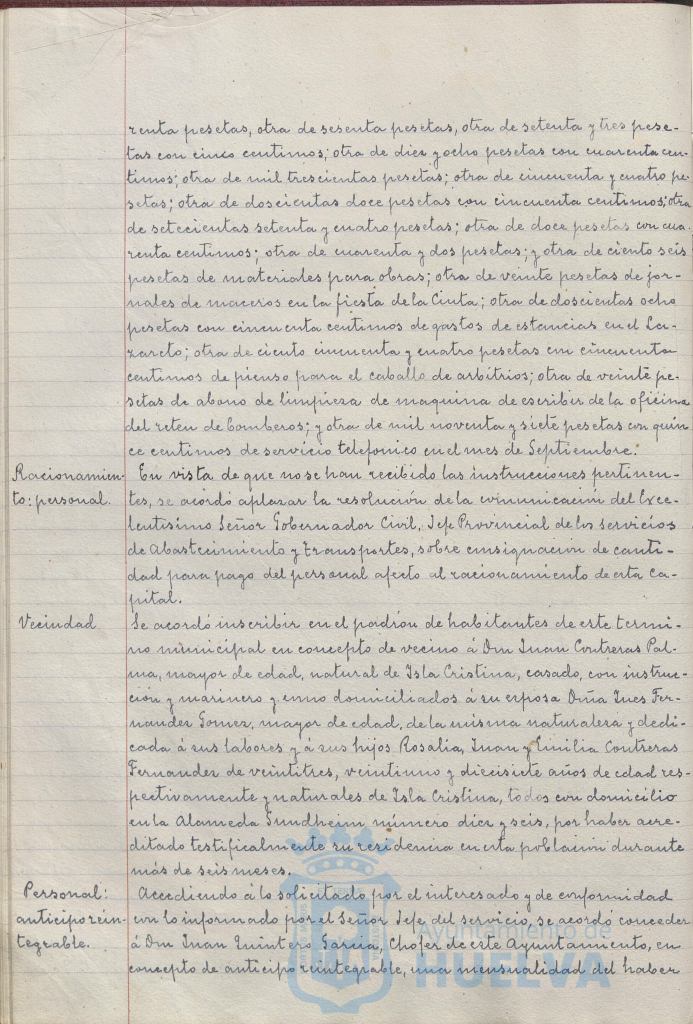 renta pesetas, otra de sesenta pesetas, otra de setenta y tres pese-
tas con cinco centimos; otra de diez y ocho pesetas con cuarenta cen-
timos; otra de mil trescientas pesetas; otra de cincuenta y cuatro pe-
setas; otra de doscientas doce pesetas con cincuenta centimos; otra
de setecientas setenta y cuatro pesetas; otra de doce pesetas con cua-
renta centimos; otra de cuarenta y dos pesetas; y otra de ciento seis
pesetas de materiales para obras; otra de veinte pesetas de jor-
nales de maceros en la fiesta de la Cinta; otra de doscientas ocho
pesetas con cincuenta centimos de gastos de estancias en el La-
zareto; otra de ciento cincuenta y cuatro pesetas con cincuenta
centimos de pienso para el caballo de arbitrios; otra de veinte pe-
setas de abono de limpieza de maquina de escribir de la oficina
del reten de bomberos; y otra de mil noventa y siete pesetas con quin
ce centimos de servicio telefonico en el mes de Septiembre.
Racionamien-
to: personal.
En vista de que no se han recibido las instrucciones pertinen-
tes, se acordó aplazar la resolución de la comunicación del Exce-
lentisimo Señor Gobernador Civil, Jefe Provincial de los servicios
de Abastecimiento y Transportes, sobre consignacion de canti-
dad para pago del personal afecto al racionamiento de esta ca-
pital.
Vecindad
Se acordó inscribir en el padrón de habitantes de este termi-
no municipal en concepto de vecino á Don Juan Contreras Pal-
ma, mayor de edad, natural de Isla Cristina, casado, con instruc-
ción y marinero y como domiciliados á su esposa Doña Ines Fer-
nandez Gomez, mayor de edad, de la misma naturaleza y dedi-
cada á sus labores y á sus hijos Rosalia, Juan y Emilia Contreras
Fernandez de veintitres, veintiuno y diecisiete años de edad res-
pectivamente y naturales de Isla Cristina, todos con domicilio
en la Alameda Sundheim número diez y seis, por haber acre-
ditado testificalmente su residencia en esta poblacion durante
más de seis meses.
Personal:
anticipo rein-
tegrable.
Accediendo á lo solicitado por el interesado y de conformidad
con lo informado por el Señor Jefe del servicio, se acordó conceder
á Don Juan Quintero Garcia, Chofer de este Ayuntamiento, en
concepto de anticipo reintegrable, una mensualidad del haber
Ayuntamiento de
HUELVA